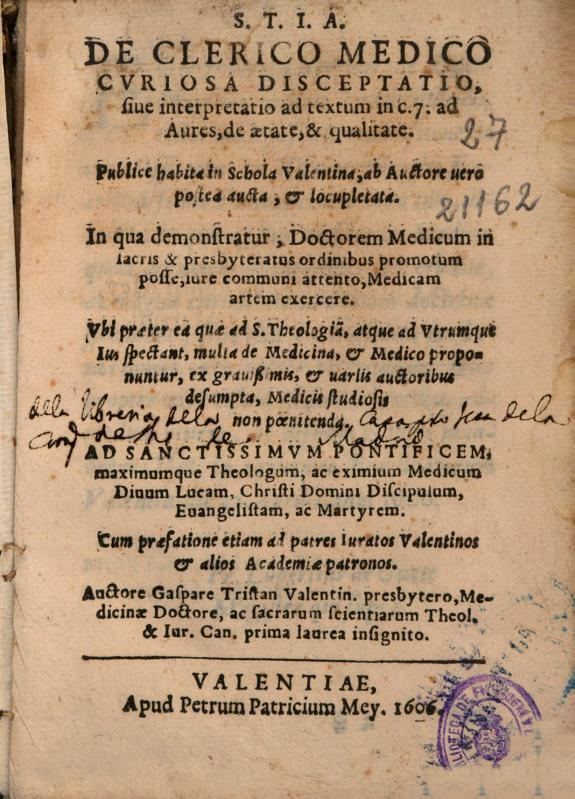 S. T. I. A.
DE CLERICO MEDICO
CVRIOSA DISCEPTATIO,
ſiue interpretatio ad textum in c. 7. ad
Aures, de ætate, & qualitate.
27
Publice habita in Schola Valentina, ab Auctore uero
poſtea aucta, & locupletata.
21162
In qua demonſtratur, Doctorem Medicum in
ſacris & presbyteratus ordinibus promotum
poſſe, iure communi attento, Medicam
artem exercere.
Vbi præter ea quæ ad S. Theologiã, atque ad Vtrumque
Ius ſpectant, multa de Medicina, & Medico propo-
nuntur, ex grauißimis, & uariis auctoribus
deſumpta, Medicis ſtudioſis
non pœnitenda.
della libreria della
de la
AD SANCTISSIMVM PONTIFICEM,
maximumque Theologum, ac eximium Medicum
Diuum Lucam, Chriſti Domini Diſcipulum,
Euangeliſtam, ac Martyrem.
Cum præfatione etiam ad patres Iuratos Valentinos
& alios Academiæ patronos.
Auctore Gaſpare Triſtan Valentin. presbytero, Me-
dicinæ Doctore, ac ſacrarum ſcientiarum Theol.
& Iur. Can. prima laurea inſignito.
VALENTIAE,
Apud Petrum Patricium Mey. 1606.